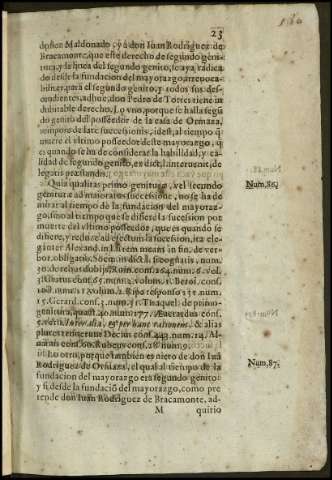 23
doñez Maldonado, y à don Iuan Rodriguez de
Bracamonte, que este derecho de segundo geni-
tura, y de linea del segundo genito, se aya radica
do desde la fundacion del mayorazgo, irreuoca-
bilmente, para el segundo genito, y todos sus des-
cendientes, adhuc, don Pedro de Torres tiene in
dubitable derecho. Lo vno, porque se halla segũ
do genito del posseedor de la casa de Ormaza,
tempore delatę successionis, idest, al tiempo q̃
muere el vltimo posseedor deste mayorazgo, q̃
es quando se ha de considerar la habilidad, y ca-
lidad de segundo genito, ex dict. l. interuenit, de
legatis præstandis.
Quia qualitas primo genituræ, vel secundo
Num. 86.
genituræ ad maioratus successione, no se ha de
mirar al tiempo de la fundacion del mayoraz-
go, sino al tiempo que se difiere la sucession por
muerte del vltimo posseedor, que es quando se
difiere, y reduce ad effectum la sucession, ita ele-
ganter Alexand. in l. Rem meam in fin. de ver-
bor. obligatio. Socin. in dict. l. si cognatis, num.
30. de rebus dubijs, Ruin. cons. 164. num. 6. vol.
3. Gratus cons. 63. num. 4. volum. 1. Beroi. cons.
num. 11. volum. 2. Ripa responso 131. num.
15. Gerard. cons. 3. num. 51. Tiraquel. de primo-
genitura, quæst. 40. num. 177. Aueradus cons.
5. versic. Inter alia, & per hanc rationem, & alias
plures retinetur Decius cons. 443. num. 14. Al-
cons. 60. Rubeus cons. 28. num. 9.
Lo otro, porque tambien es nieto de don Iuã
Num. 87.
Rodriguez de Ormaza, el qual al tiempo de la
fundacion del mayorazgo era segundo genito:
y si desde la fundaciõ del mayorazgo, como pre
tende don Iuan Rodriguez de Bracamonte, ad-
M quitio